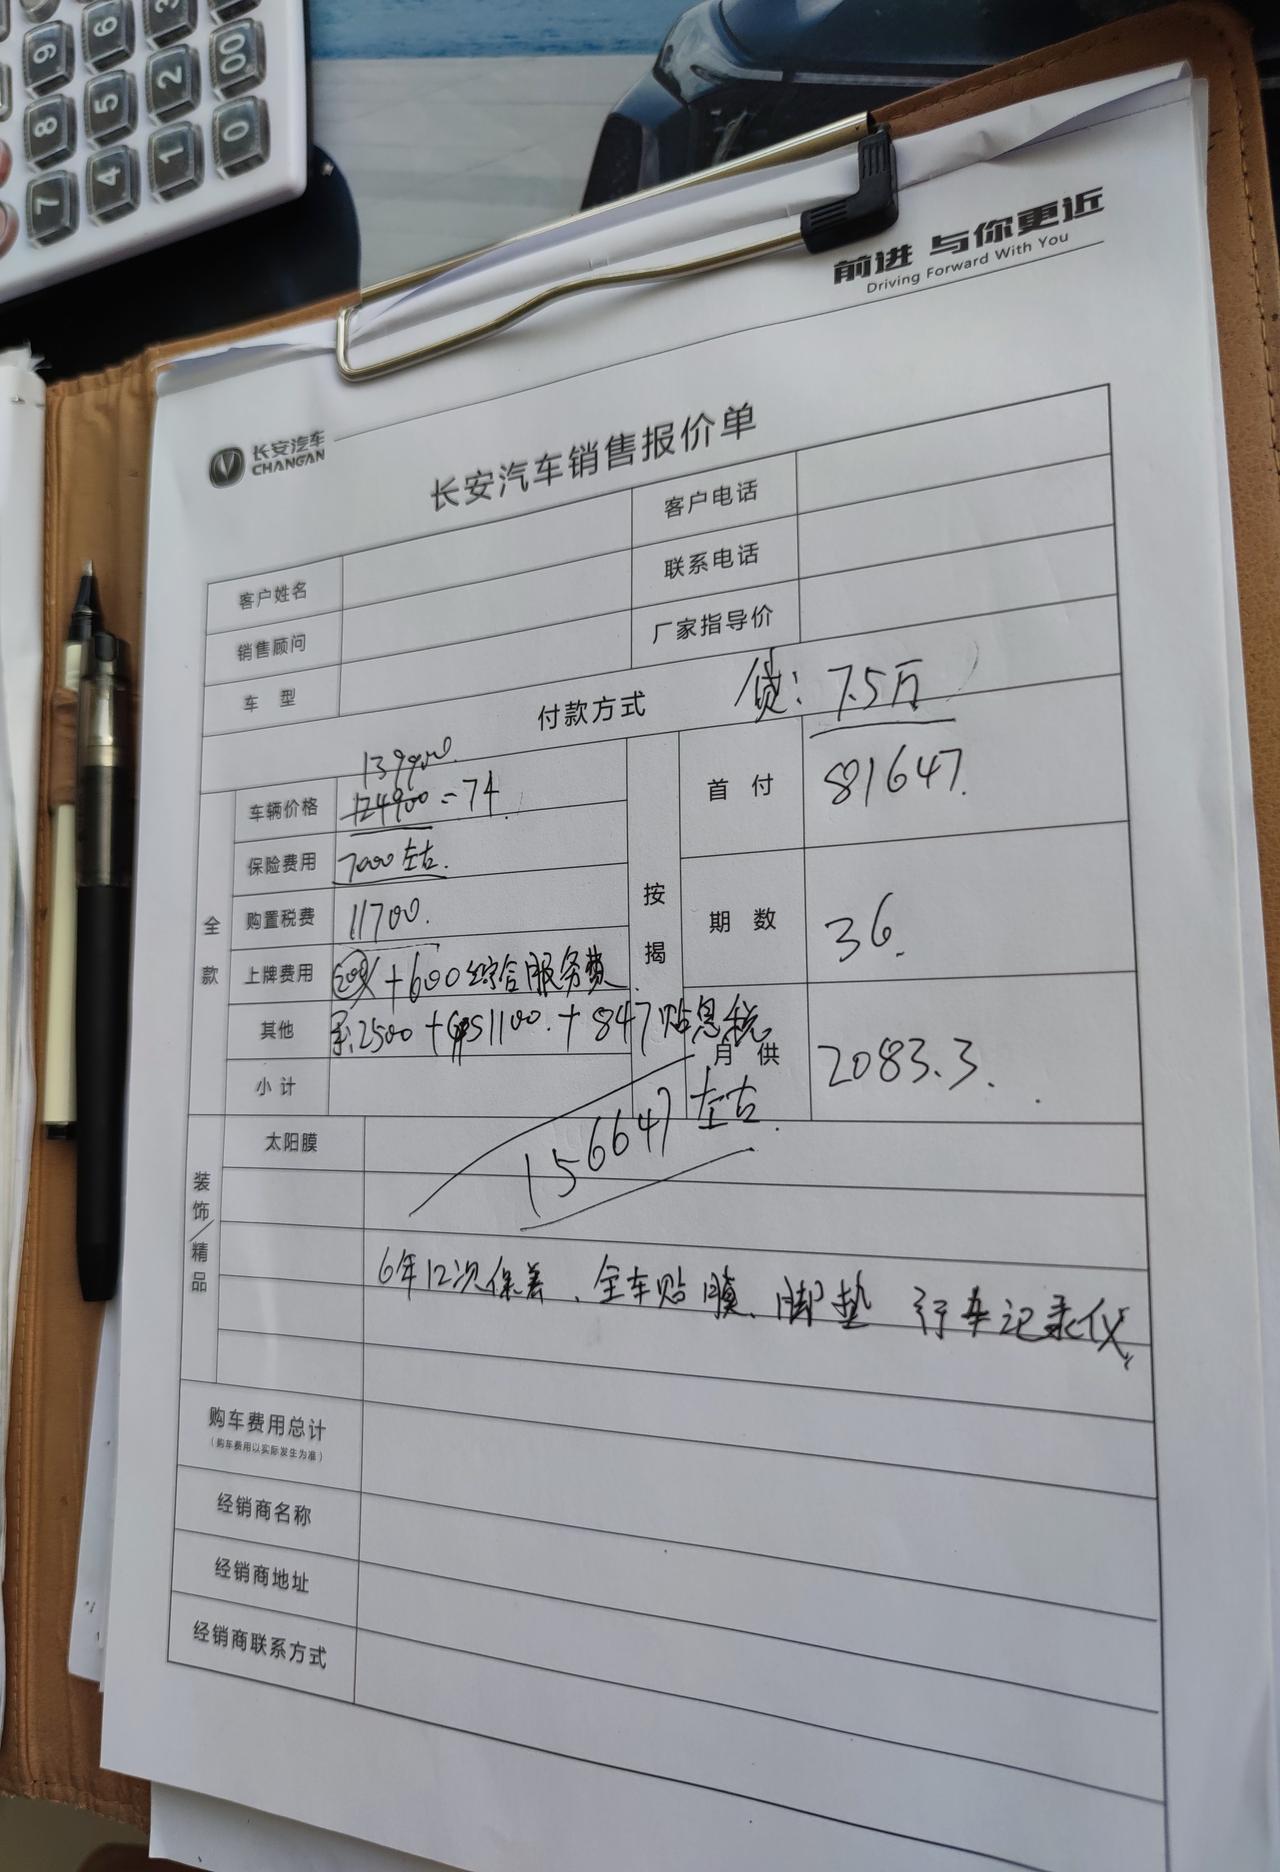 9 6 3
8 5 2 00
7 4 1 0
前进 与你更近
Driving Forward With You
长安汽车
CHANGAN
长安汽车销售报价单
客户姓名 客户电话
销售顾问 联系电话
车型 厂家指导价
付款方式 贷：7.5万
139900
全款 车辆价格 124900 - 7千 按揭 首付 81647
保险费用 7000左右
购置税费 11700 期数 36
上牌费用 +600综合服务费
其他 2500 + GPS1100 + 847贴息税 月供 2083.3
小计
156647左右
装饰/精品 太阳膜
6年12次保养、全车贴膜、脚垫 行车记录仪
购车费用总计
（购车费用以实际发生为准）
经销商名称
经销商地址
经销商联系方式